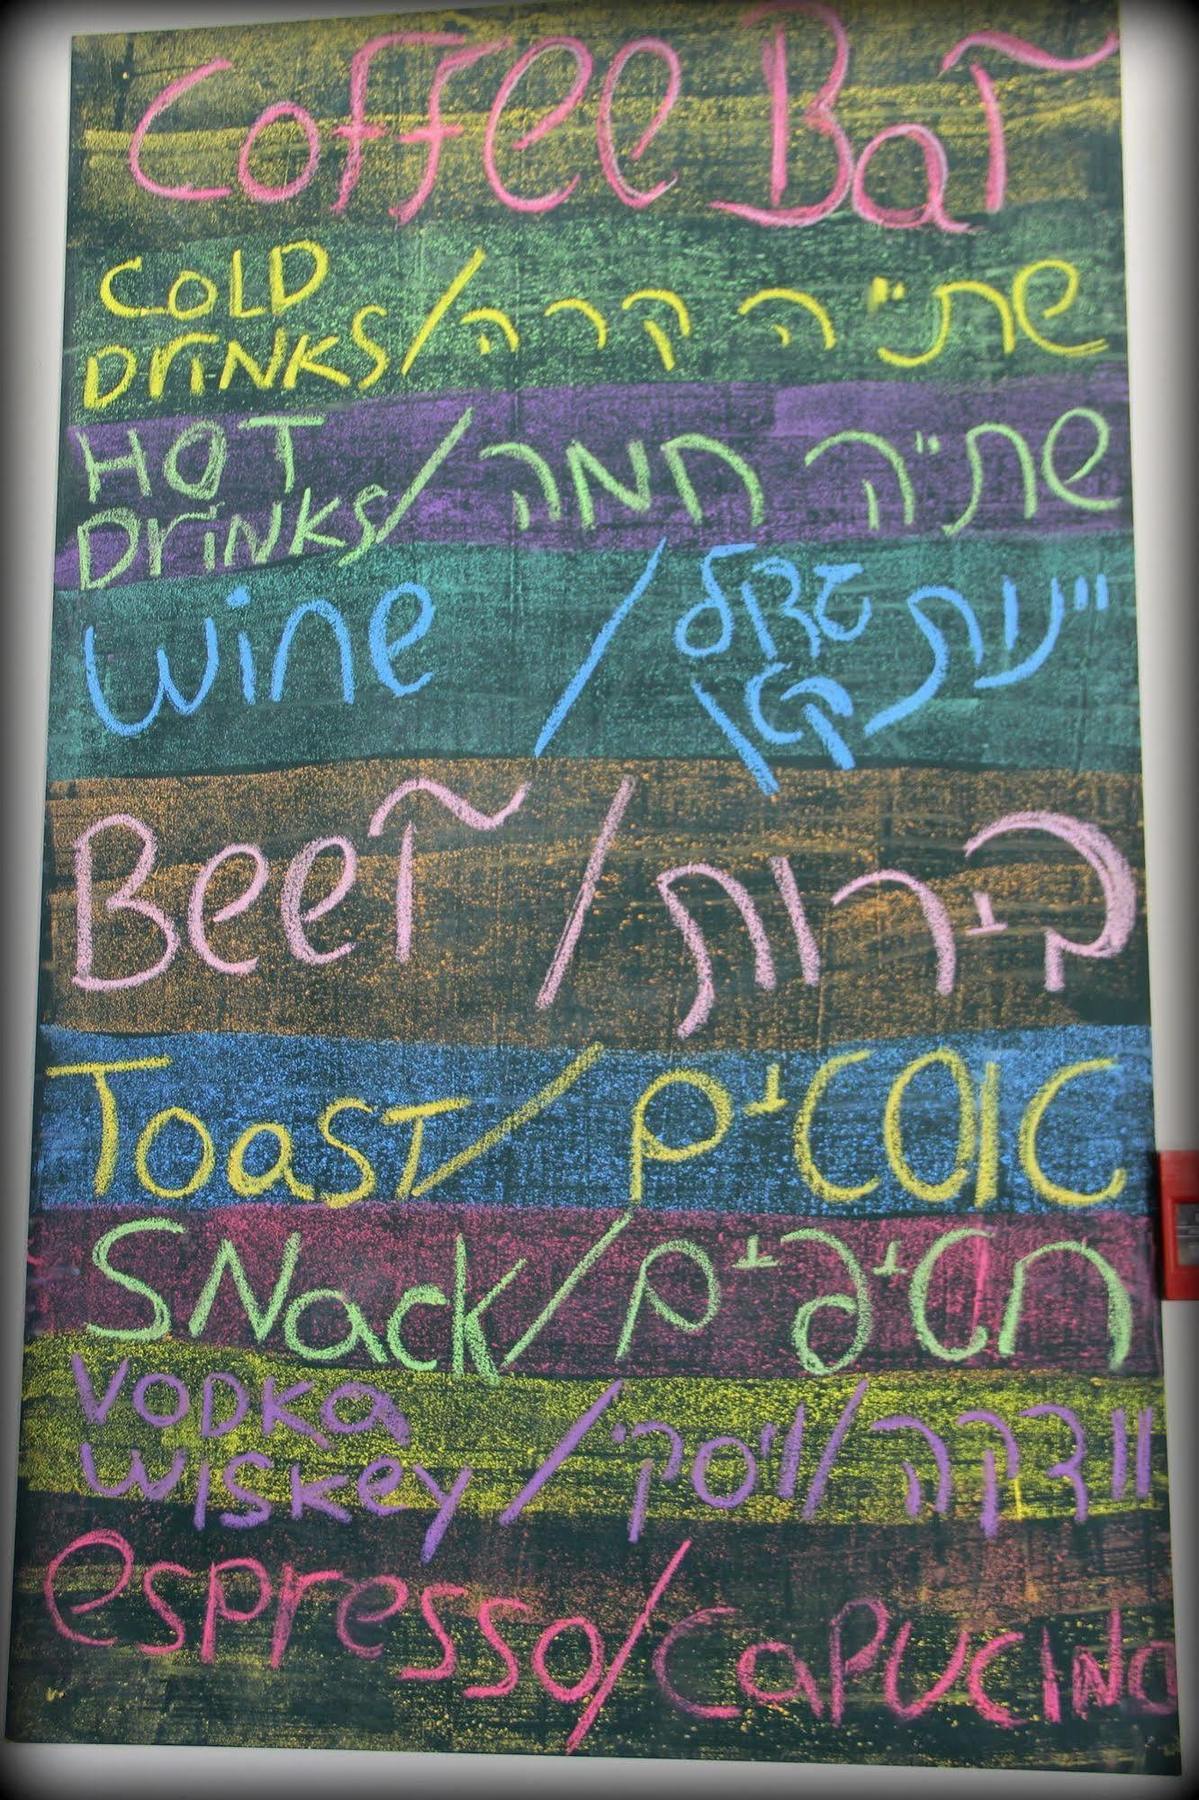 Coffee Bar
COLD
DrINKS/ שתייה קרה
HOT
DrINKS/ שתייה חמה
wine / יינות
קטן
Beer / בירות
Toast/ טוסטים
SNack/ חטיפים
VODKa
WISKey / וודקה/ויסקי
espresso/CaPUCINo